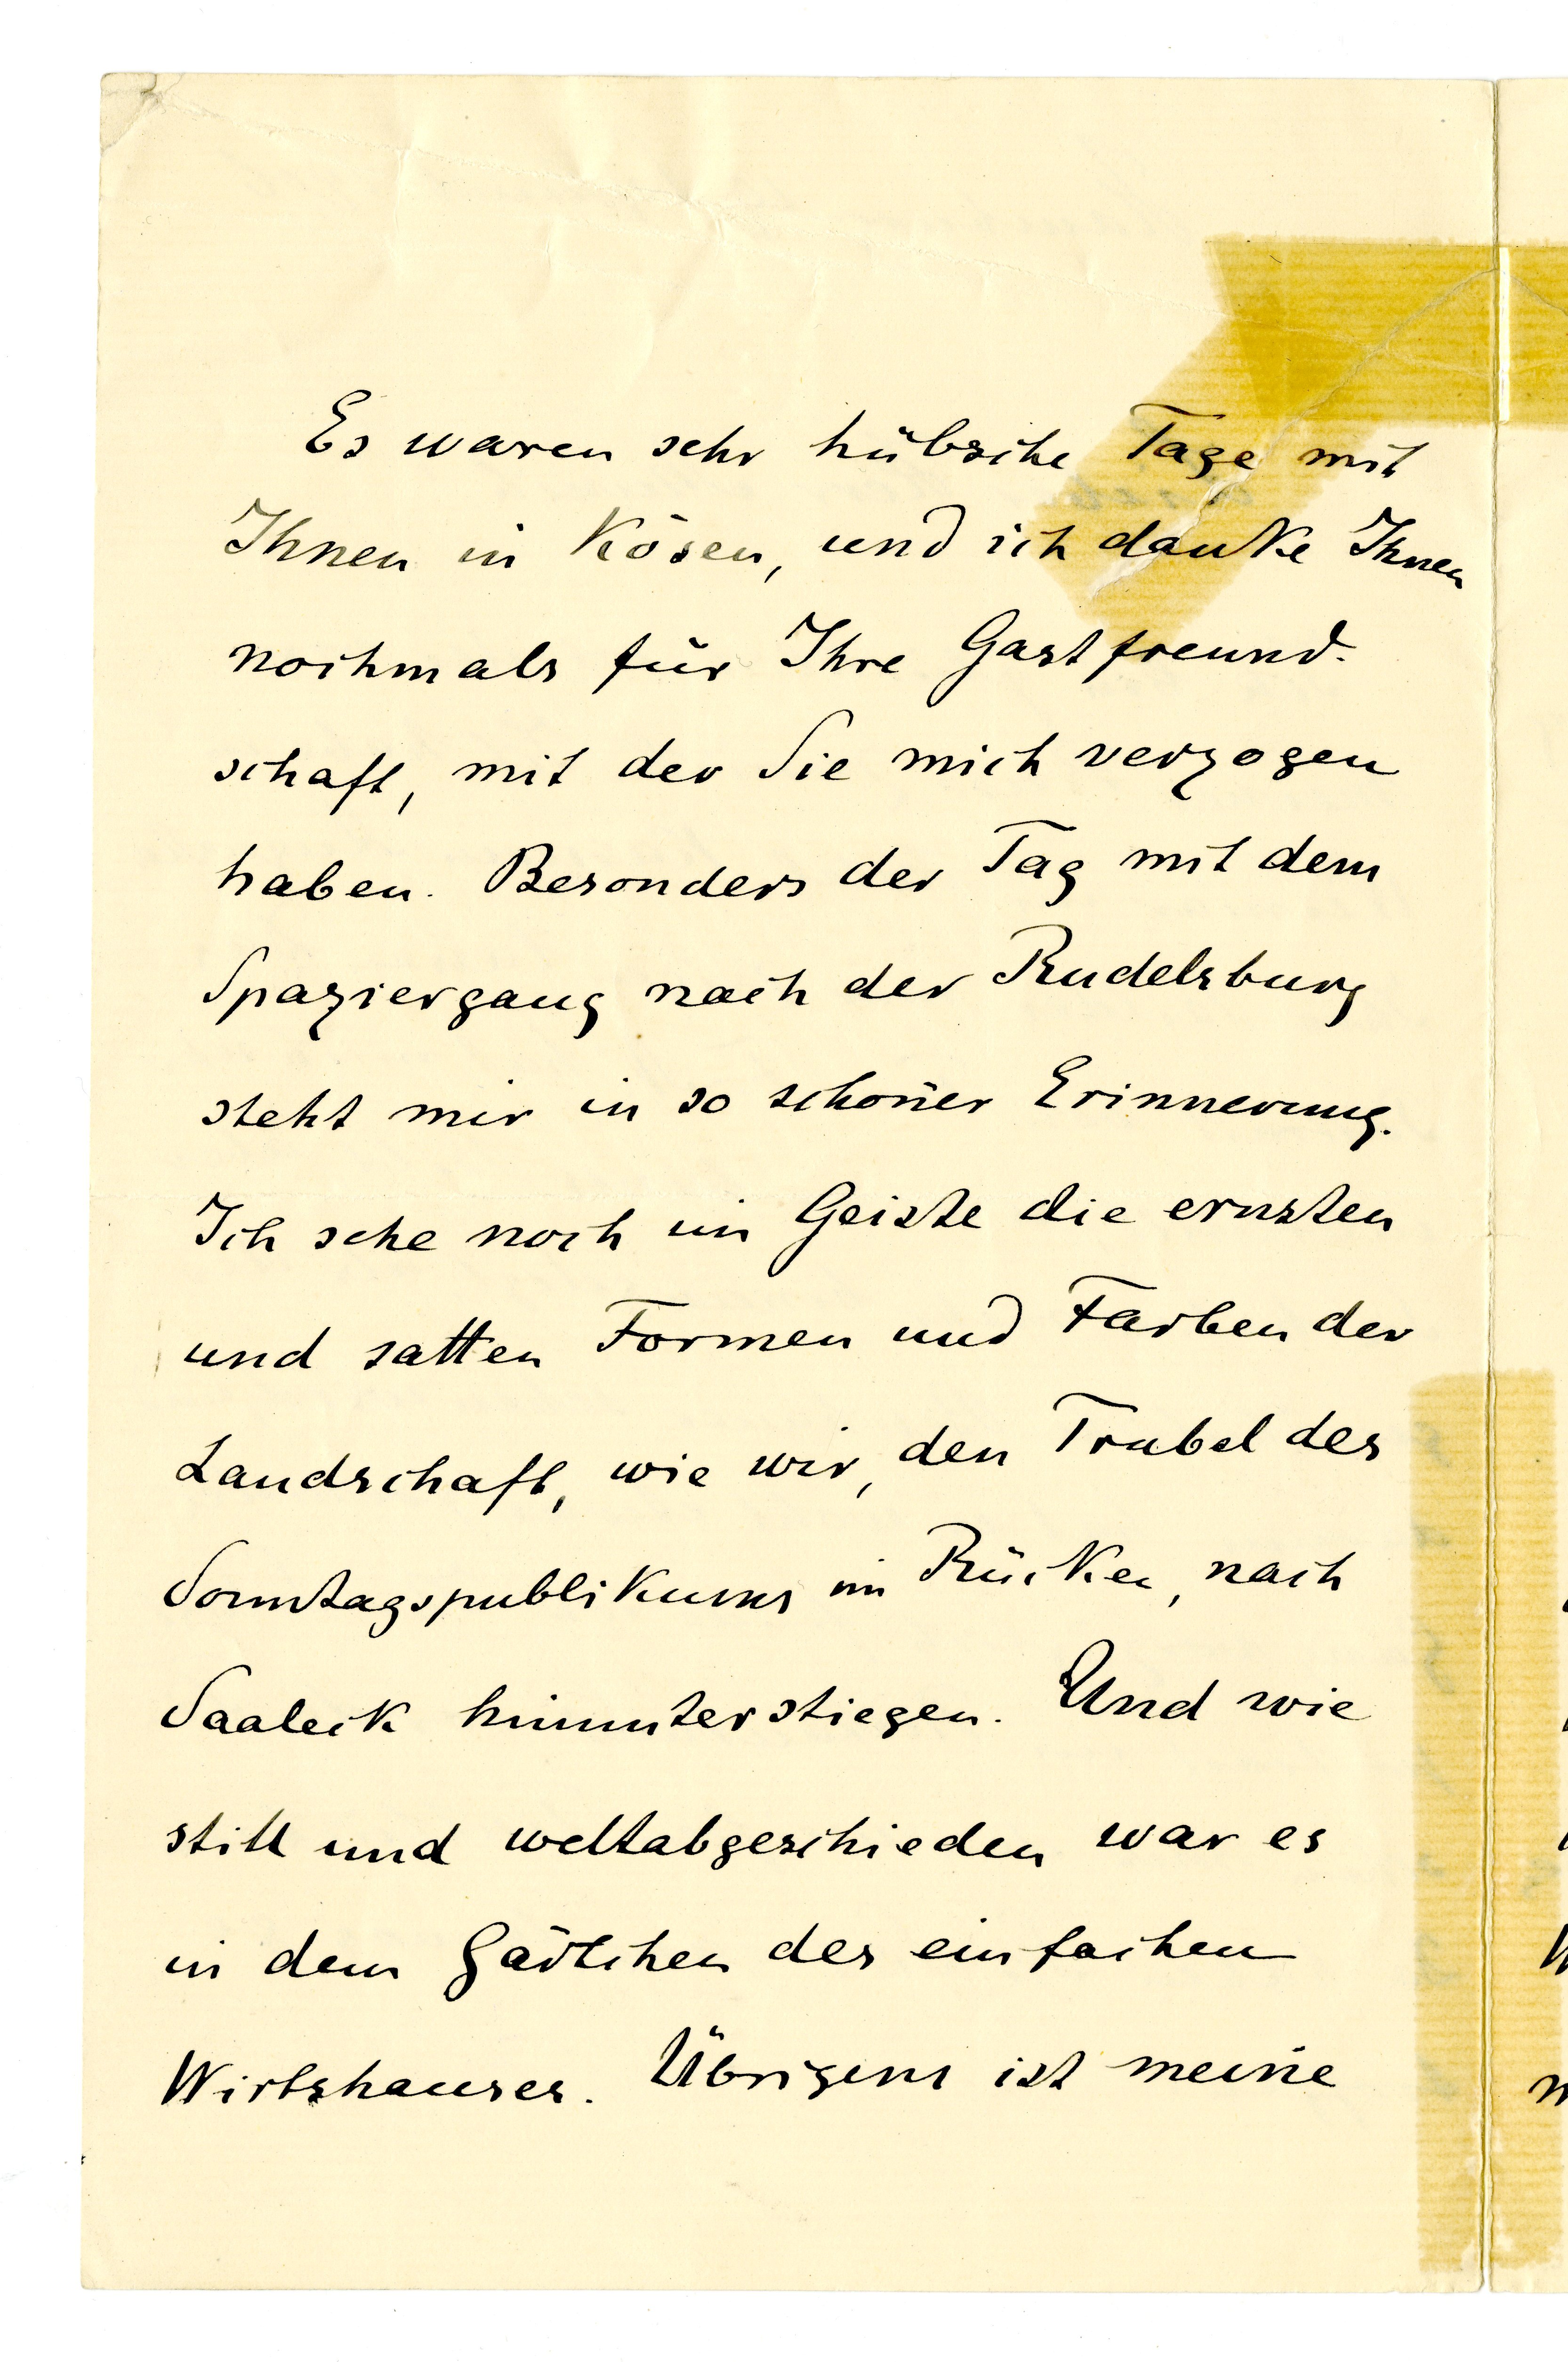 Es waren sehr hübsche Tage mit
Ihnen in Kösen, und ich danke Ihnen
nochmals für Ihre Gastfreund-
schaft, mit der Sie mich verzogen
haben. Besonders der Tag mit dem
Spaziergang nach der Rudelsburg
steht mir in so schöner Erinnerung.
Ich sehe noch im Geiste die ernsten
und satten Formen und Farben der
Landschaft, wie wir, den Trubel des
Sonntagspublikums im Rücken, nach
Saaleck hinunterstiegen. Und wie
still und weltabgeschieden war es
in dem Gärtchen des einfachen
Wirtshauses. Übrigens ist meine